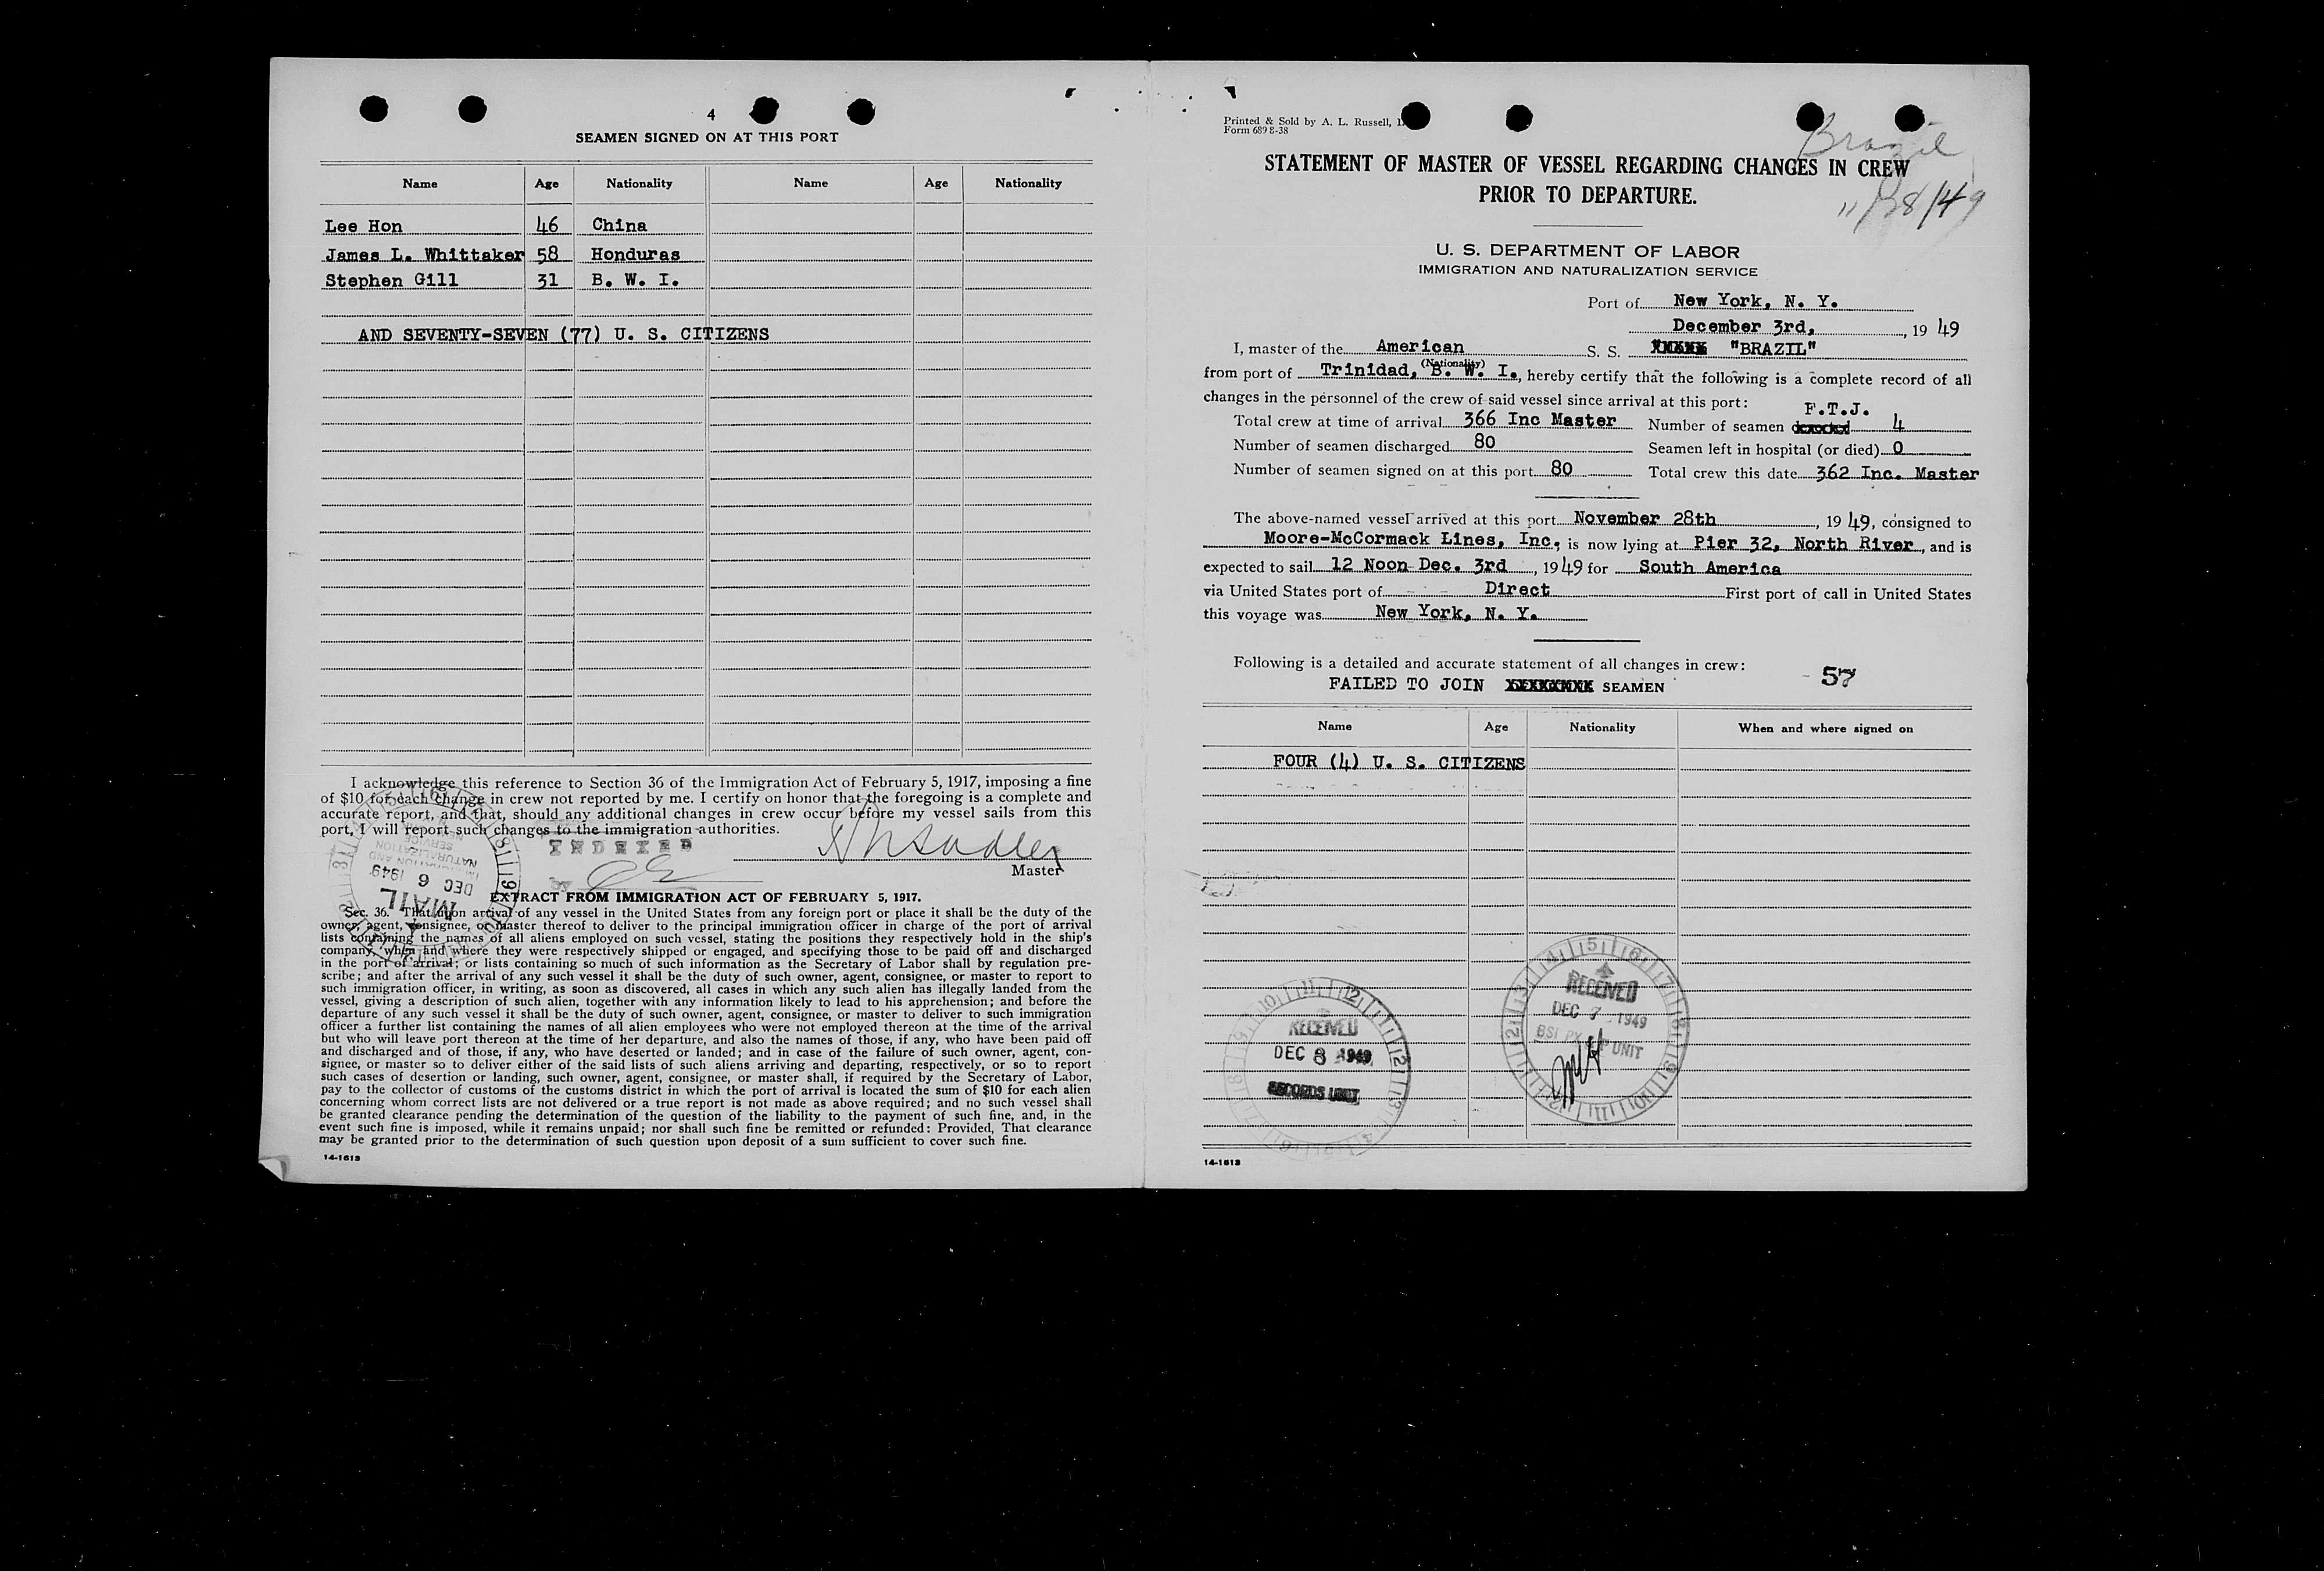 4
SEAMEN SIGNED ON AT THIS PORT
Name Age Nationality Name Age Nationality
Lee Hon 46 China
James L. Whittaker 58 Honduras
Stephen Gill 31 B. W. I.
AND SEVENTY-SEVEN (77) U. S. CITIZENS
I acknowledge this reference to Section 36 of the Immigration Act of February 5, 1917, imposing a fine
of $10 for each change in crew not reported by me. I certify on honor that the foregoing is a complete and
accurate report, and that, should any additional changes in crew occur before my vessel sails from this
port, I will report such changes to the immigration authorities.
INDEXED
Master
MAIL
DEC 6 1949
IMMIGRATION AND
NATURALIZATION
SERVICE
EXTRACT FROM IMMIGRATION ACT OF FEBRUARY 5, 1917.
Sec. 36. That upon arrival of any vessel in the United States from any foreign port or place it shall be the duty of the
owner, agent, consignee, or master thereof to deliver to the principal immigration officer in charge of the port of arrival
lists containing the names of all aliens employed on such vessel, stating the positions they respectively hold in the ship's
company, when and where they were respectively shipped or engaged, and specifying those to be paid off and discharged
in the port of arrival; or lists containing so much of such information as the Secretary of Labor shall by regulation pre-
scribe; and after the arrival of any such vessel it shall be the duty of such owner, agent, consignee, or master to report to
such immigration officer, in writing, as soon as discovered, all cases in which any such alien has illegally landed from the
vessel, giving a description of such alien, together with any information likely to lead to his apprehension; and before the
departure of any such vessel it shall be the duty of such owner, agent, consignee, or master to deliver to such immigration
officer a further list containing the names of all alien employees who were not employed thereon at the time of the arrival
but who will leave port thereon at the time of her departure, and also the names of those, if any, who have been paid off
and discharged and of those, if any, who have deserted or landed; and in case of the failure of such owner, agent, con-
signee, or master so to deliver either of the said lists of such aliens arriving and departing, respectively, or so to report
such cases of desertion or landing, such owner, agent, consignee, or master shall, if required by the Secretary of Labor,
pay to the collector of customs of the customs district in which the port of arrival is located the sum of $10 for each alien
concerning whom correct lists are not delivered or a true report is not made as above required; and no such vessel shall
be granted clearance pending the determination of the question of the liability to the payment of such fine, and, in the
event such fine is imposed, while it remains unpaid; nor shall such fine be remitted or refunded: Provided, That clearance
may be granted prior to the determination of such question upon deposit of a sum sufficient to cover such fine.
14-1613
Printed & Sold by A. L. Russell,
Form 689 8-38
Brazil
11/28/49
STATEMENT OF MASTER OF VESSEL REGARDING CHANGES IN CREW
PRIOR TO DEPARTURE.
U. S. DEPARTMENT OF LABOR
IMMIGRATION AND NATURALIZATION SERVICE
Port of New York, N. Y.
December 3rd, , 19 49
I, master of the American S. S. "BRAZIL"
(Nationality)
from port of Trinidad, B. W. I., hereby certify that the following is a complete record of all
changes in the personnel of the crew of said vessel since arrival at this port:
F.T.J.
Total crew at time of arrival 366 Inc Master Number of seamen deserted 4
Number of seamen discharged 80 Seamen left in hospital (or died) 0
Number of seamen signed on at this port 80 Total crew this date 362 Inc. Master
The above-named vessel arrived at this port November 28th , 19 49, consigned to
Moore-McCormack Lines, Inc. is now lying at Pier 32, North River, and is
expected to sail 12 Noon Dec. 3rd , 19 49 for South America
via United States port of Direct First port of call in United States
this voyage was New York, N. Y.
Following is a detailed and accurate statement of all changes in crew:
57
FAILED TO JOIN SEAMEN
Name Age Nationality When and where signed on
FOUR (4) U. S. CITIZENS
RECEIVED
DEC 7 - 1949
BSI UNIT
RECEIVED
DEC 8 1949
RECORDS UNIT
14-1613